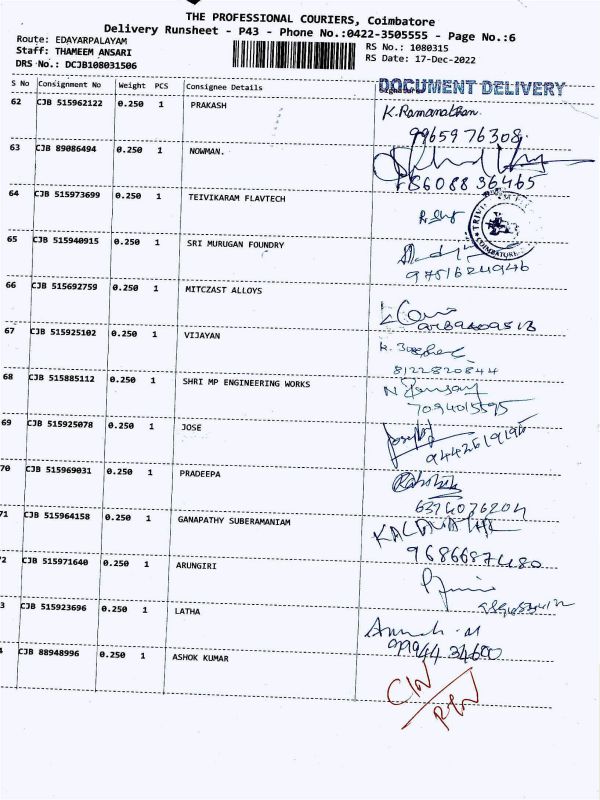 THE PROFESSIONAL COURIERS, Coimbatore
Delivery Runsheet - P43 - Phone No.:0422-3505555 - Page No.:6
Route: EDAYARPALAYAM
Staff: THAMEEM ANSARI
DRS No.: DCJB108031506
RS No.: 1080315
RS Date: 17-Dec-2022
S No Consignment No Weight PCS Consignee Details Signature
DOCUMENT DELIVERY
62 CJB 515962122 0.250 1 PRAKASH K. Ramanathan
9965976308
63 CJB 89086494 0.250 1 NOWMAN.
8608836465
64 CJB 515973699 0.250 1 TEIVIKARAM FLAVTECH
COIMBATORE
65 CJB 515940915 0.250 1 SRI MURUGAN FOUNDRY
9751624946
66 CJB 515692759 0.250 1 MITCZAST ALLOYS
67 CJB 515925102 0.250 1 VIJAYAN
8122820844
68 CJB 515885112 0.250 1 SHRI MP ENGINEERING WORKS
7094015595
69 CJB 515925078 0.250 1 JOSE
70 CJB 515969031 0.250 1 PRADEEPA
6374076204
71 CJB 515964158 0.250 1 GANAPATHY SUBERAMANIAM
9686687480
2 CJB 515971640 0.250 1 ARUNGIRI
3 CJB 515923696 0.250 1 LATHA
9994434600
CJB 88948996 0.250 1 ASHOK KUMAR